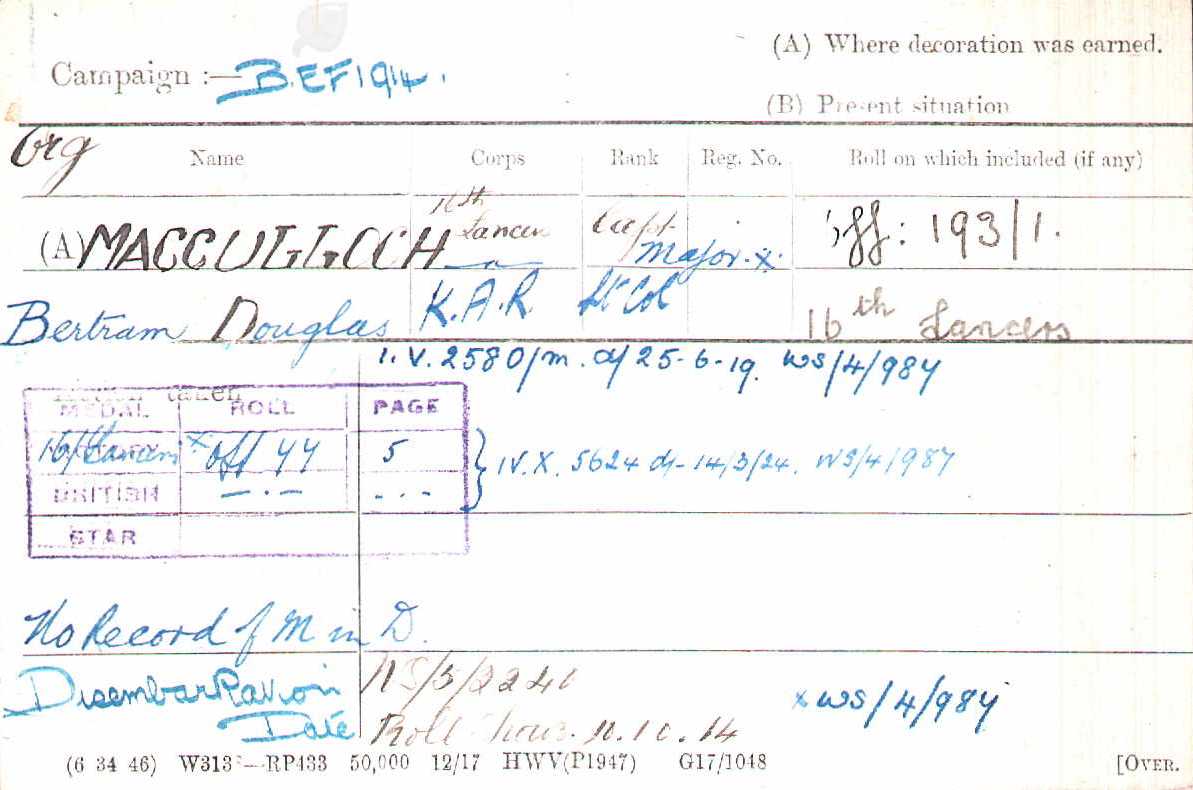 (A) Where decoration was earned.
Campaign :— B.E.F 1914.
(B) Present situation
Name Corps Rank Reg. No. Roll on which included (if any)
16th
(A) MACCULLOCH Lancers Capt. Off: 193/1.
Major. x.
Bertram Douglas K.A.R. Lt Col 16th Lancers
I.V. 2580/m. d/ 25-6-19. WS/4/984
Action taken
MEDAL ROLL PAGE
VICTORY
16/Lancers x Off 44 5 } IV.X. 5624 d- 14/3/24. WS/4/987
BRITISH — . — - . -
STAR
No Record of M in D.
Disembarkation NS/5/2246
Date Roll shows 11.10.14 x WS/4/984
(6 34 46) W313 —RP433 50,000 12/17 HWV(P1947) G17/1048 [OVER.